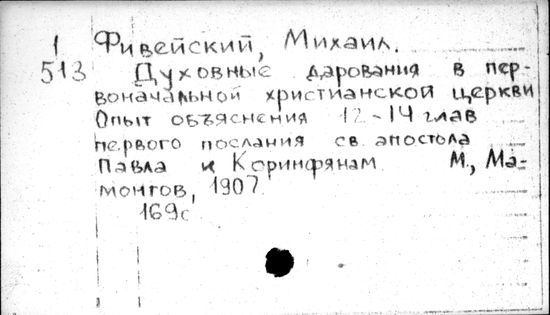 1 Фивейский, Михаил.
513 Духовные дарования в пер-
воначальной христианской церкви
Опыт объяснения 12-14 глав
первого послания св. апостола
Павла к Коринфянам М., Ма-
монтов, 1907.
169с